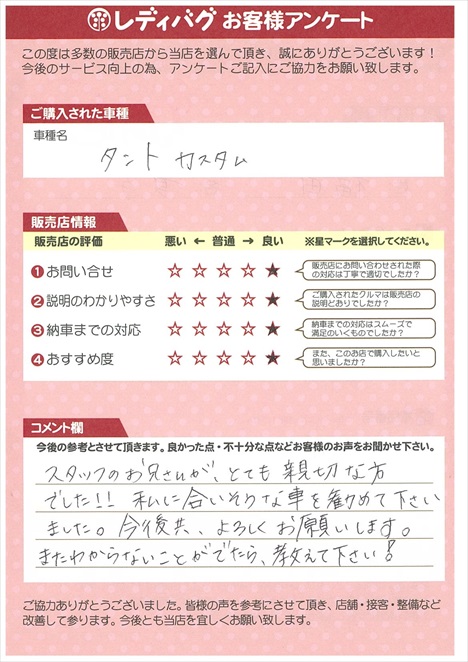 レディバグ お客様アンケート
この度は多数の販売店から当店を選んで頂き、誠にありがとうございます！
今後のサービス向上の為、アンケートご記入にご協力をお願い致します。
ご購入された車種
車種名
タント カスタム
販売店情報
販売店の評価 悪い ← 普通 → 良い ※星マークを選択してください。
❶お問い合せ ☆ ☆ ☆ ☆ ★ 販売店にお問い合わせされた際
の対応は丁寧で適切でしたか？
❷説明のわかりやすさ ☆ ☆ ☆ ☆ ★ ご購入されたクルマは販売店の
説明どおりでしたか？
❸納車までの対応 ☆ ☆ ☆ ☆ ★ 納車までの対応はスムーズで
満足のいくものでしたか？
❹おすすめ度 ☆ ☆ ☆ ☆ ★ また、このお店で購入したいと
思いましたか？
コメント欄
今後の参考とさせて頂きます。良かった点・不十分な点などお客様のお声をお聞かせ下さい。
スタッフのお兄さんが、とても親切な方
でした!! 私に合いそうな車を勧めて下さい
ました。今後共、よろしくお願いします。
またわからないことがでたら、教えて下さい!
ご協力ありがとうございました。皆様の声を参考にさせて頂き、店舗・接客・整備など
改善して参ります。今後とも当店を宜しくお願い致します。